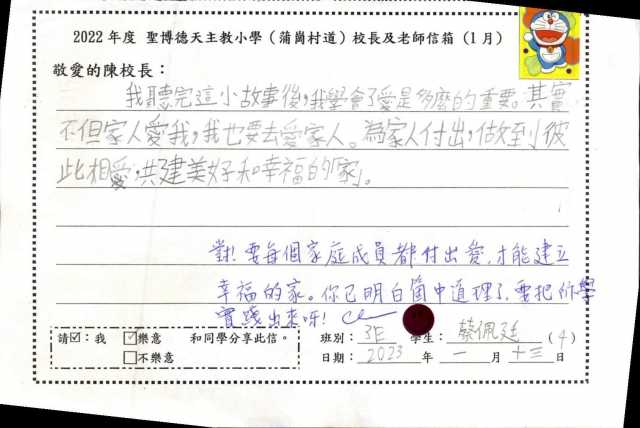 2022 年度 聖博德天主教小學（蒲崗村道）校長及老師信箱（1月）
敬愛的陳校長：
我聽完這小故事後，我學會了愛是多麼的重要。其實
不但家人愛我，我也要去愛家人。為家人付出，做到彼
此相愛，共建美好和幸福的「家」。
對！要每個家庭成員都付出愛，才能建立
幸福的家。你已明白箇中道理了，要把所學
實踐出來呀！
請☑：我 ☑樂意 和同學分享此信。
□不樂意
班別：3E 學生：蔡佩廷（4）
日期：2023 年 一 月 十三 日